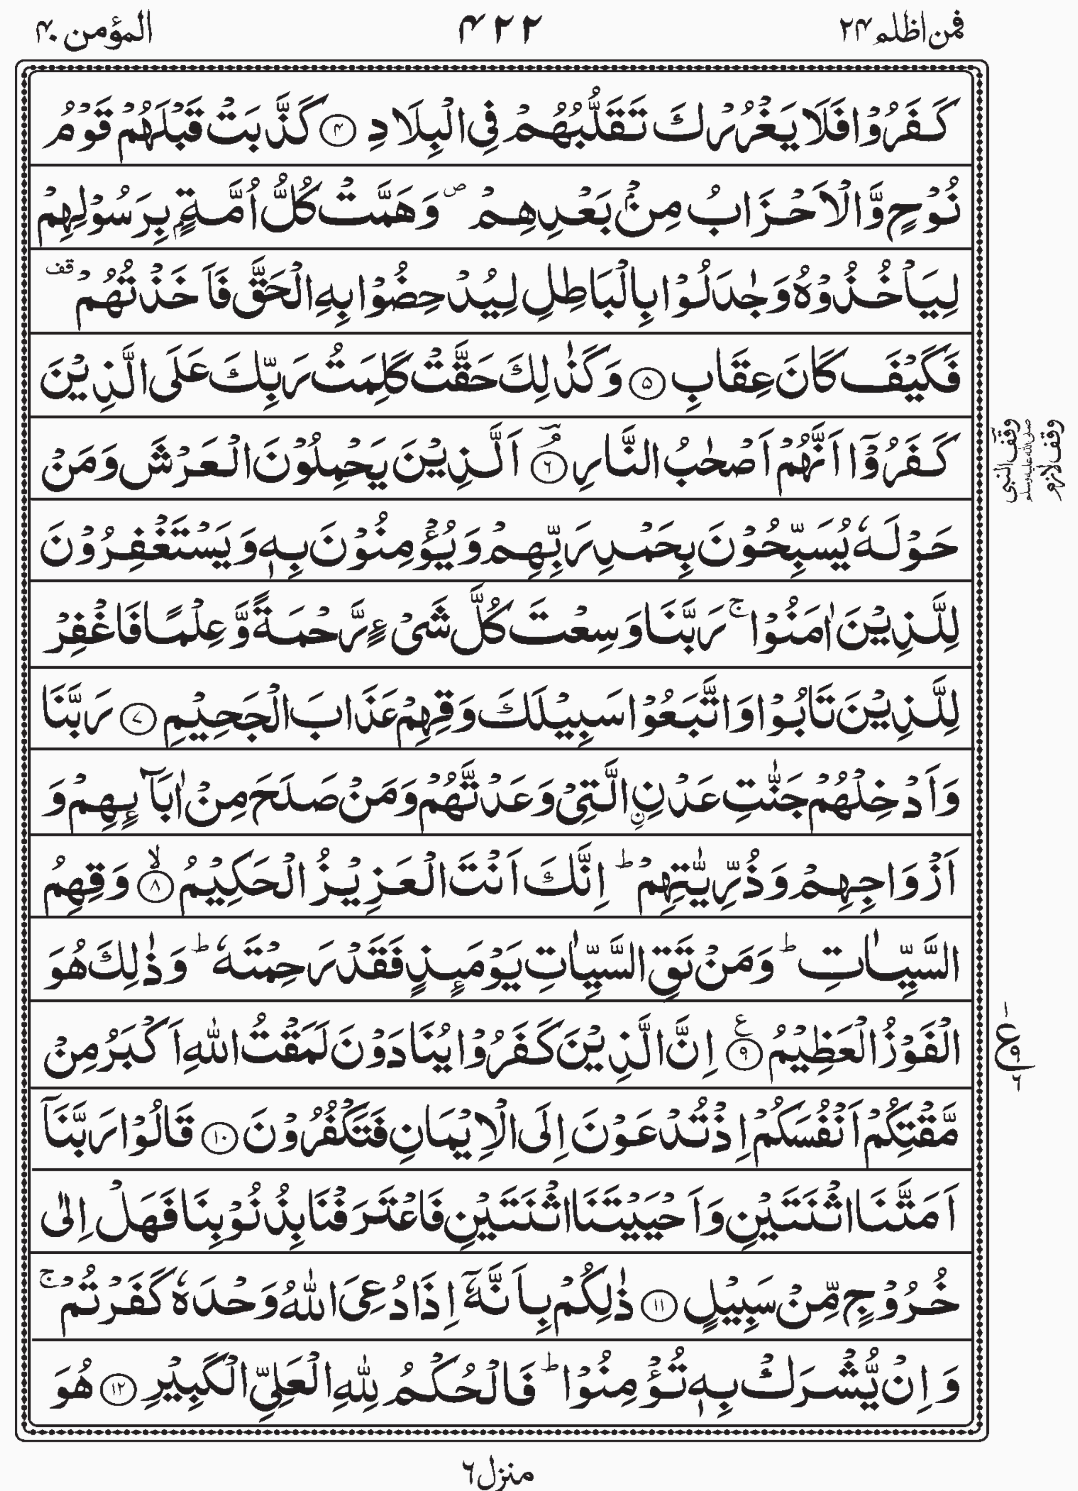 فمن اظلم ۲۴ ۴۲۲ المؤمن ۴۰
كَفَرُوْا فَلَا يَغْرُرْكَ تَقَلُّبُهُمْ فِی الْبِلَادِ ۝۴ كَذَّبَتْ قَبْلَهُمْ قَوْمُ
نُوْحٍ وَّالْاَحْزَابُ مِنْۢ بَعْدِهِمْ ۪ وَهَمَّتْ كُلُّ اُمَّةٍۭ بِرَسُوْلِهِمْ
لِيَاْخُذُوْهُ وَجٰدَلُوْا بِالْبَاطِلِ لِيُدْحِضُوْا بِهِ الْحَقَّ فَاَخَذْتُهُمْ قف
فَكَيْفَ كَانَ عِقَابِ ۝۵ وَكَذٰلِكَ حَقَّتْ كَلِمَتُ رَبِّكَ عَلَی الَّذِيْنَ
كَفَرُوْۤا اَنَّهُمْ اَصْحٰبُ النَّارِ ۝۶ۘ اَلَّذِيْنَ يَحْمِلُوْنَ الْعَرْشَ وَمَنْ
وقف النبی صلی الله علیه وسلم
وقف لازم
حَوْلَهٗ يُسَبِّحُوْنَ بِحَمْدِ رَبِّهِمْ وَيُؤْمِنُوْنَ بِهٖ وَيَسْتَغْفِرُوْنَ
لِلَّذِيْنَ اٰمَنُوْا ۚ رَبَّنَا وَسِعْتَ كُلَّ شَیْءٍ رَّحْمَةً وَّعِلْمًا فَاغْفِرْ
لِلَّذِيْنَ تَابُوْا وَاتَّبَعُوْا سَبِيْلَكَ وَقِهِمْ عَذَابَ الْجَحِيْمِ ۝۷ رَبَّنَا
وَاَدْخِلْهُمْ جَنّٰتِ عَدْنِ ِ۟الَّتِیْ وَعَدْتَّهُمْ وَمَنْ صَلَحَ مِنْ اٰبَآىِٕهِمْ وَ
اَزْوَاجِهِمْ وَذُرِّيّٰتِهِمْ ؕ اِنَّكَ اَنْتَ الْعَزِيْزُ الْحَكِيْمُ ۝۸ۙ وَقِهِمُ
السَّيِّاٰتِ ؕ وَمَنْ تَقِ السَّيِّاٰتِ يَوْمَىِٕذٍ فَقَدْ رَحِمْتَهٗ ؕ وَذٰلِكَ هُوَ
الْفَوْزُ الْعَظِيْمُ ۝۹ ع اِنَّ الَّذِيْنَ كَفَرُوْا يُنَادَوْنَ لَمَقْتُ اللّٰهِ اَكْبَرُ مِنْ
۱ ع ۹ ۶
مَّقْتِكُمْ اَنْفُسَكُمْ اِذْ تُدْعَوْنَ اِلَی الْاِيْمَانِ فَتَكْفُرُوْنَ ۝۱۰ قَالُوْا رَبَّنَاۤ
اَمَتَّنَا اثْنَتَيْنِ وَاَحْيَيْتَنَا اثْنَتَيْنِ فَاعْتَرَفْنَا بِذُنُوْبِنَا فَهَلْ اِلٰی
خُرُوْجٍ مِّنْ سَبِيْلٍ ۝۱۱ ذٰلِكُمْ بِاَنَّهٗۤ اِذَا دُعِیَ اللّٰهُ وَحْدَهٗ كَفَرْتُمْ ۚ
وَاِنْ يُّشْرَكْ بِهٖ تُؤْمِنُوْا ؕ فَالْحُكْمُ لِلّٰهِ الْعَلِیِّ الْكَبِيْرِ ۝۱۲ هُوَ
منزل ۶